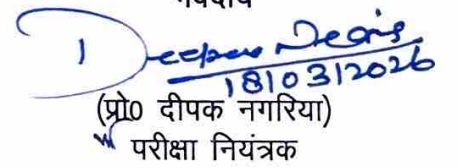 भवदीय
Deepak Negria
18/03/2026
(प्रो0 दीपक नगरिया)
परीक्षा नियंत्रक